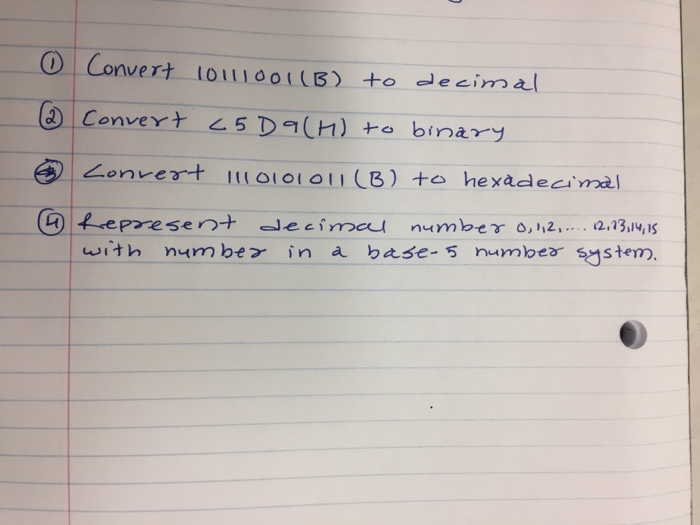 ① Convert 10111001(B) to decimal
② Convert C5D9(H) to binary
③ Convert 1110101011(B) to hexadecimal
④ Represent decimal number 0,1,2,.... 12,13,14,15
with number in a base-5 number system.